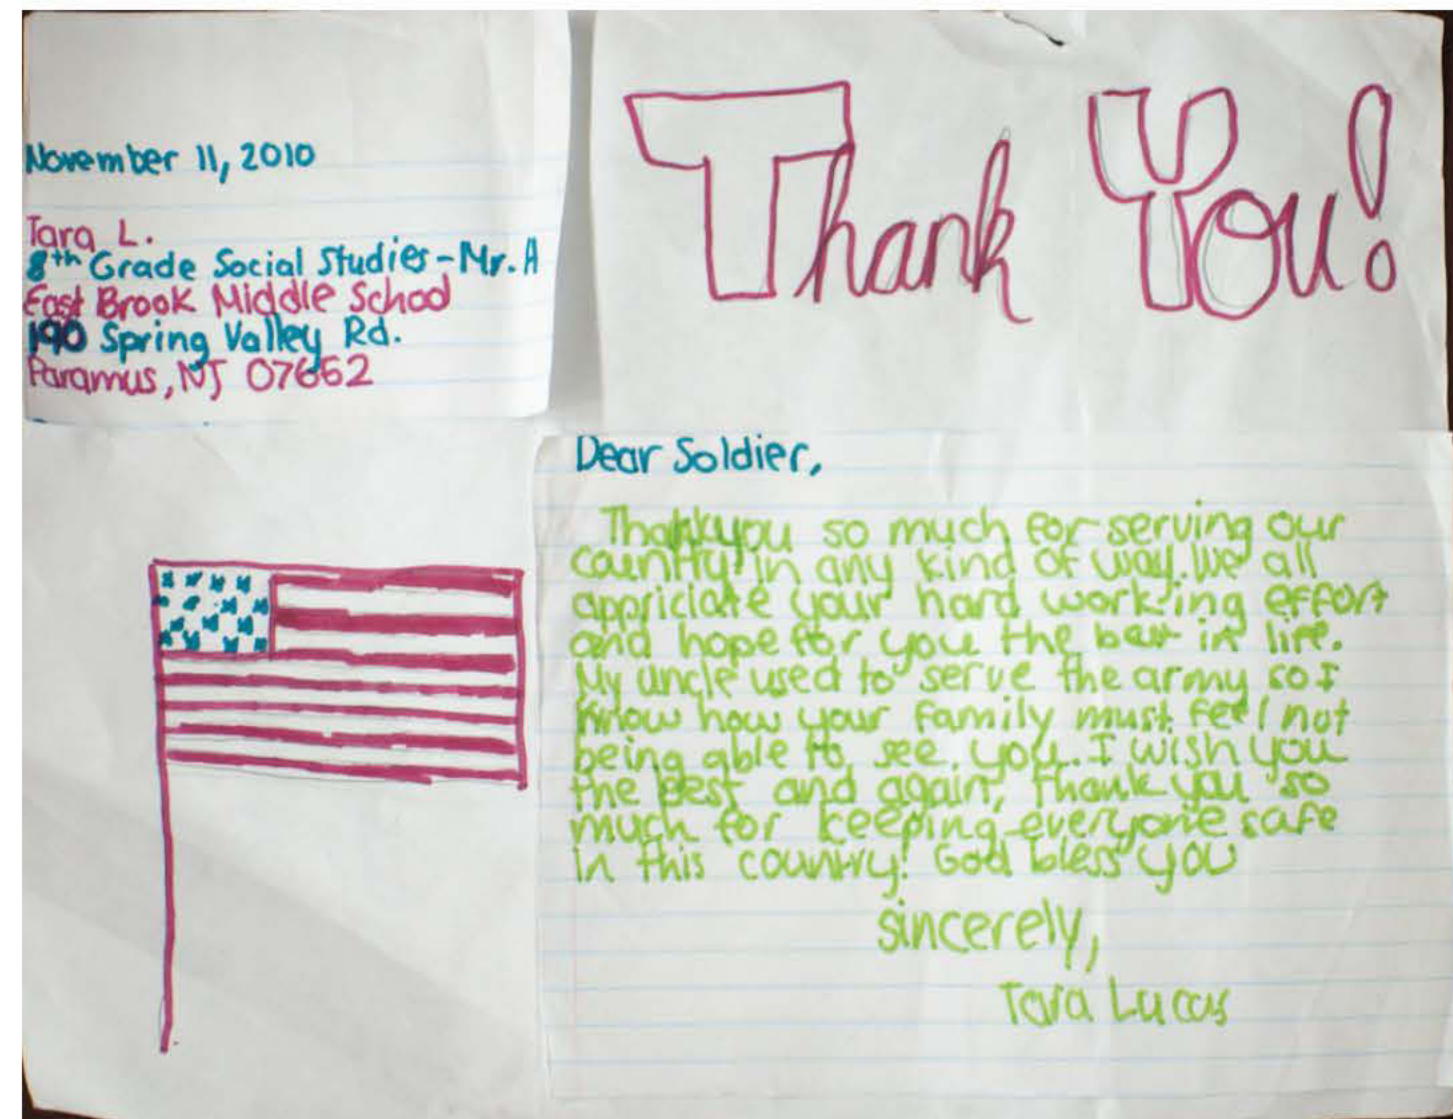 November 11, 2010
Tara L.
8th Grade Social Studies-Mr. A
East Brook Middle School
190 Spring Valley Rd.
Paramus, NJ 07652
Thank You!
Dear Soldier,
Thankyou so much for serving our
country in any kind of way. We all
appriciate your hard working effort
and hope for you the best in life.
My uncle used to serve the army so I
know how your family must feel not
being able to see you. I wish you
the best and again, thank you so
much for keeping everyone safe
in this country! God bless you
sincerely,
Tara Lucas